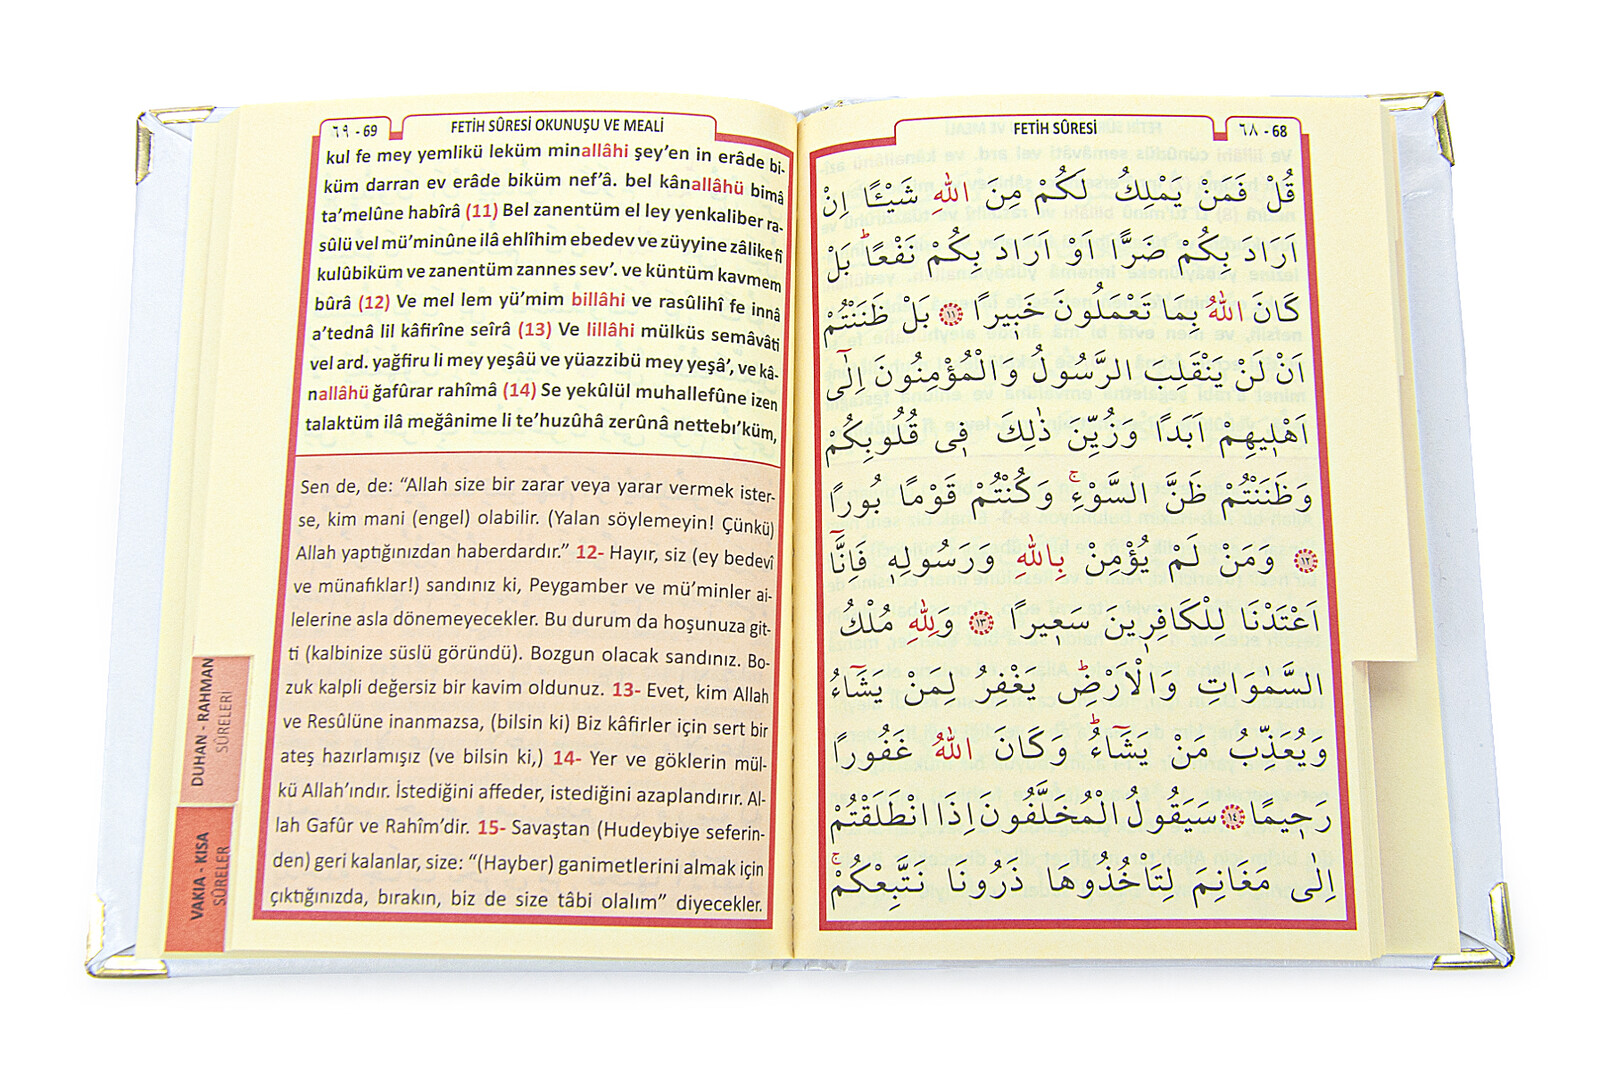 ٦٩ - 69
FETİH SÛRESİ OKUNUŞU VE MEALİ
kul fe mey yemlikü leküm minallâhi şey’en in erâde bi-
küm darran ev erâde biküm nef’â. bel kânallâhü bimâ
ta’melûne habîrâ (11) Bel zanentüm el ley yenkaliber ra-
sûlü vel mü’minûne ilâ ehlîhim ebedev ve züyyine zâlike fî
kulûbiküm ve zanentüm zannes sev’. ve küntüm kavmem
bûrâ (12) Ve mel lem yü’mim billâhi ve rasûlihî fe innâ
a’tednâ lil kâfirîne seîrâ (13) Ve lillâhi mülküs semâvâti
vel ard. yağfiru li mey yeşâü ve yüazzibü mey yeşâ’, ve kâ-
nallâhü ğafûrar rahîmâ (14) Se yekûlül muhallefûne izen
talaktüm ilâ meğânime li te’huzûhâ zerûnâ nettebı’küm,
Sen de, de: “Allah size bir zarar veya yarar vermek ister-
se, kim mani (engel) olabilir. (Yalan söylemeyin! Çünkü)
Allah yaptığınızdan haberdardır.” 12- Hayır, siz (ey bedevî
ve münafıklar!) sandınız ki, Peygamber ve mü’minler ai-
lelerine asla dönemeyecekler. Bu durum da hoşunuza git-
ti (kalbinize süslü göründü). Bozgun olacak sandınız. Bo-
zuk kalpli değersiz bir kavim oldunuz. 13- Evet, kim Allah
ve Resûlüne inanmazsa, (bilsin ki) Biz kâfirler için sert bir
ateş hazırlamışız (ve bilsin ki,) 14- Yer ve göklerin mül-
kü Allah’ındır. İstediğini affeder, istediğini azaplandırır. Al-
lah Gafûr ve Rahîm’dir. 15- Savaştan (Hudeybiye seferin-
den) geri kalanlar, size: “(Hayber) ganimetlerini almak için
çıktığınızda, bırakın, biz de size tâbi olalım” diyecekler.
DUHAN - RAHMAN
SÛRELERİ
VAKIA - KISA
SÛRELER
FETİH SÛRESİ
٦٨ - 68
قُلْ فَمَنْ يَمْلِكُ لَكُمْ مِنَ اللّٰهِ شَيْـًٔا اِنْ
اَرَادَ بِكُمْ ضَرًّا اَوْ اَرَادَ بِكُمْ نَفْعًاۜ بَلْ
كَانَ اللّٰهُ بِمَا تَعْمَلُونَ خَب۪يرًا ﴿١١﴾ بَلْ ظَنَنْتُمْ
اَنْ لَنْ يَنْقَلِبَ الرَّسُولُ وَالْمُؤْمِنُونَ اِلٰٓى
اَهْل۪يهِمْ اَبَدًا وَزُيِّنَ ذٰلِكَ ف۪ي قُلُوبِكُمْ
وَظَنَنْتُمْ ظَنَّ السَّوْءِۚ وَكُنْتُمْ قَوْمًا بُورًا
﴿١٢﴾ وَمَنْ لَمْ يُؤْمِنْ بِاللّٰهِ وَرَسُولِه۪ فَاِنَّٓا
اَعْتَدْنَا لِلْكَافِر۪ينَ سَع۪يرًا ﴿١٣﴾ وَلِلّٰهِ مُلْكُ
السَّمٰوَاتِ وَالْاَرْضِۜ يَغْفِرُ لِمَنْ يَشَٓاءُ
وَيُعَذِّبُ مَنْ يَشَٓاءُۜ وَكَانَ اللّٰهُ غَفُورًا
رَح۪يمًا ﴿١٤﴾ سَيَقُولُ الْمُخَلَّفُونَ اِذَا انْطَلَقْتُمْ
اِلٰى مَغَانِمَ لِتَأْخُذُوهَا ذَرُونَا نَتَّبِعْكُمْۚ